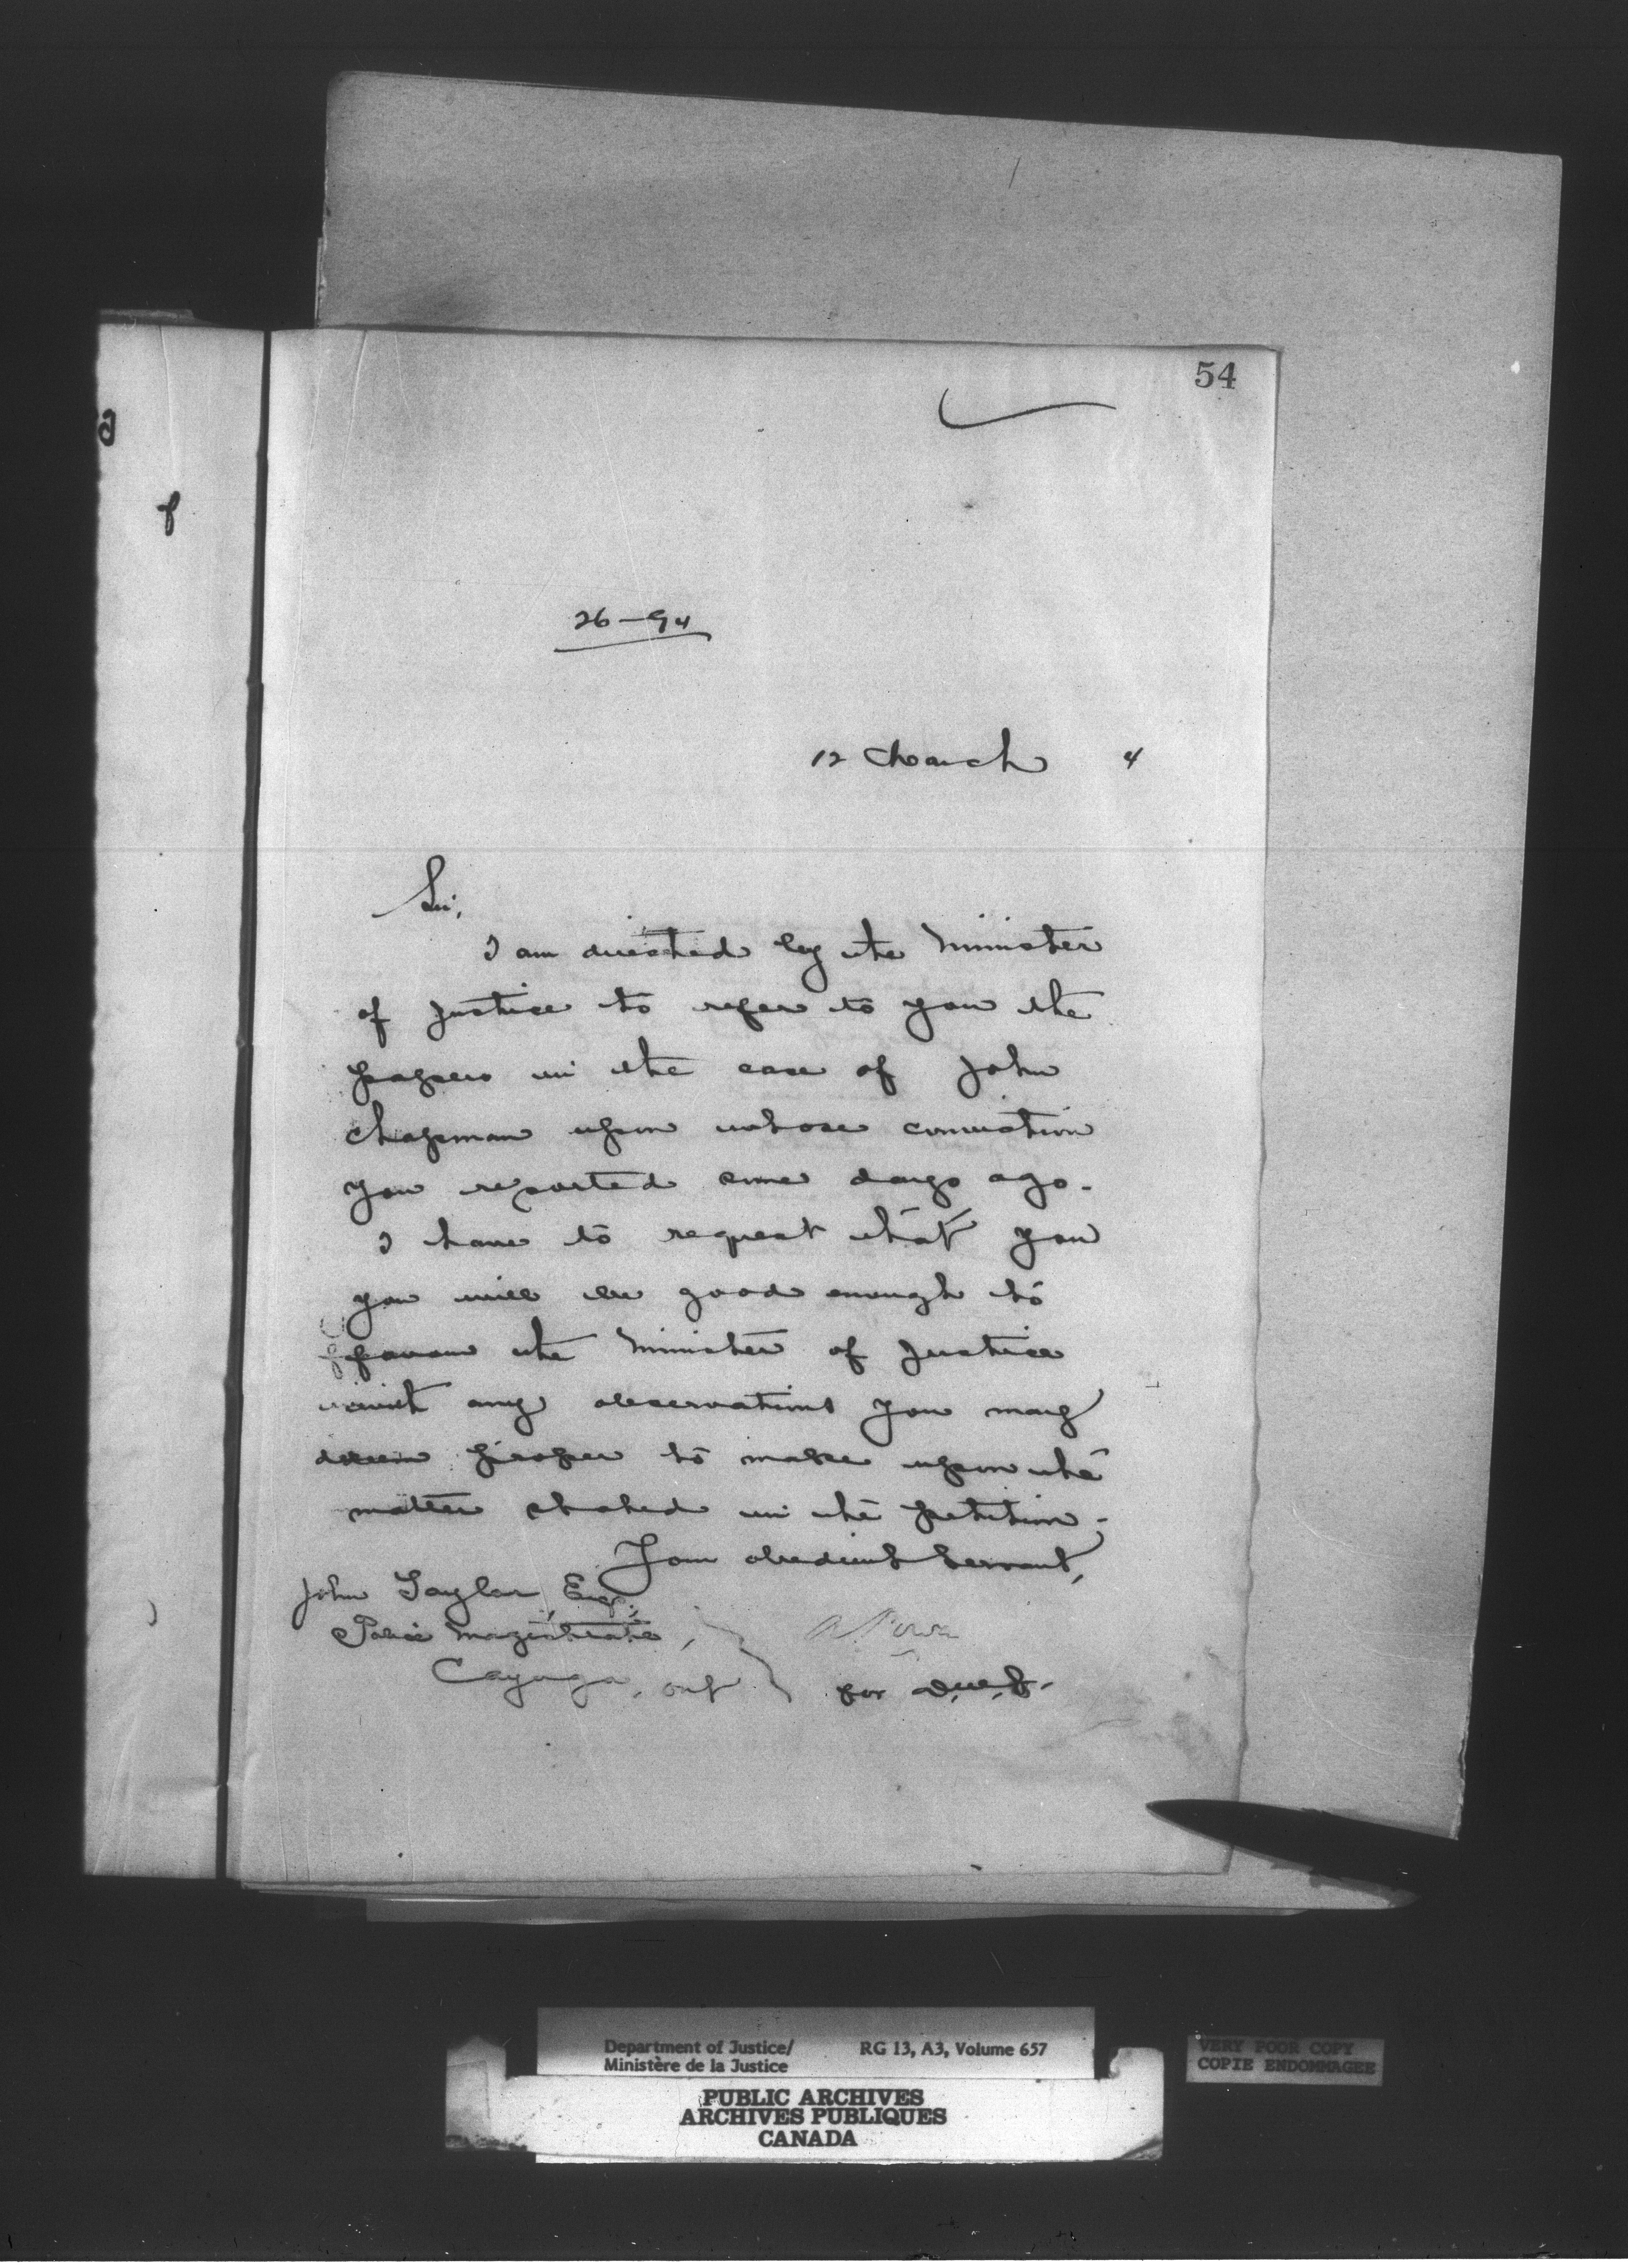 54
26-94
12 March 4
Sir,
I am directed by the Minister
of Justice to refer to you the
papers in the case of John
Chapman upon whose conviction
you reported some days ago.
I have to request that you
you will be good enough to
favour the Minister of Justice
with any observations you may
deem proper to make upon the
matter stated in the petition.
Your obedient Servant,
John Taylor, Esq.,
Police Magistrate,
A Power
Cayuga, Ont
for D.M.J.
Department of Justice/ RG 13, A3, Volume 657
Ministère de la Justice
VERY POOR COPY
COPIE ENDOMMAGEE
PUBLIC ARCHIVES
ARCHIVES PUBLIQUES
CANADA